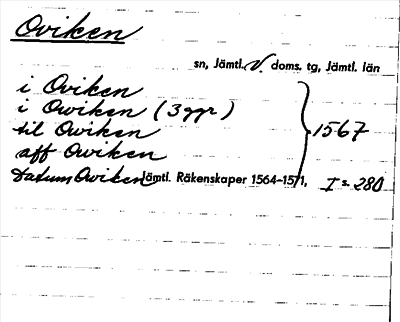 Oviken
sn, Jämtl. V. doms. tg, Jämtl. län
i Oviken
i Owiken (3 ggr)
til Owiken
aff Owiken
1567
Datum Owiken Jämtl. Räkenskaper 1564–1571, I s. 280